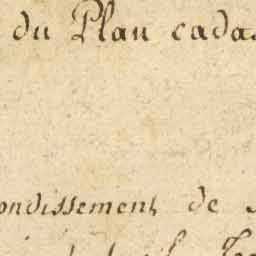 du Plan cadas
ondissement de